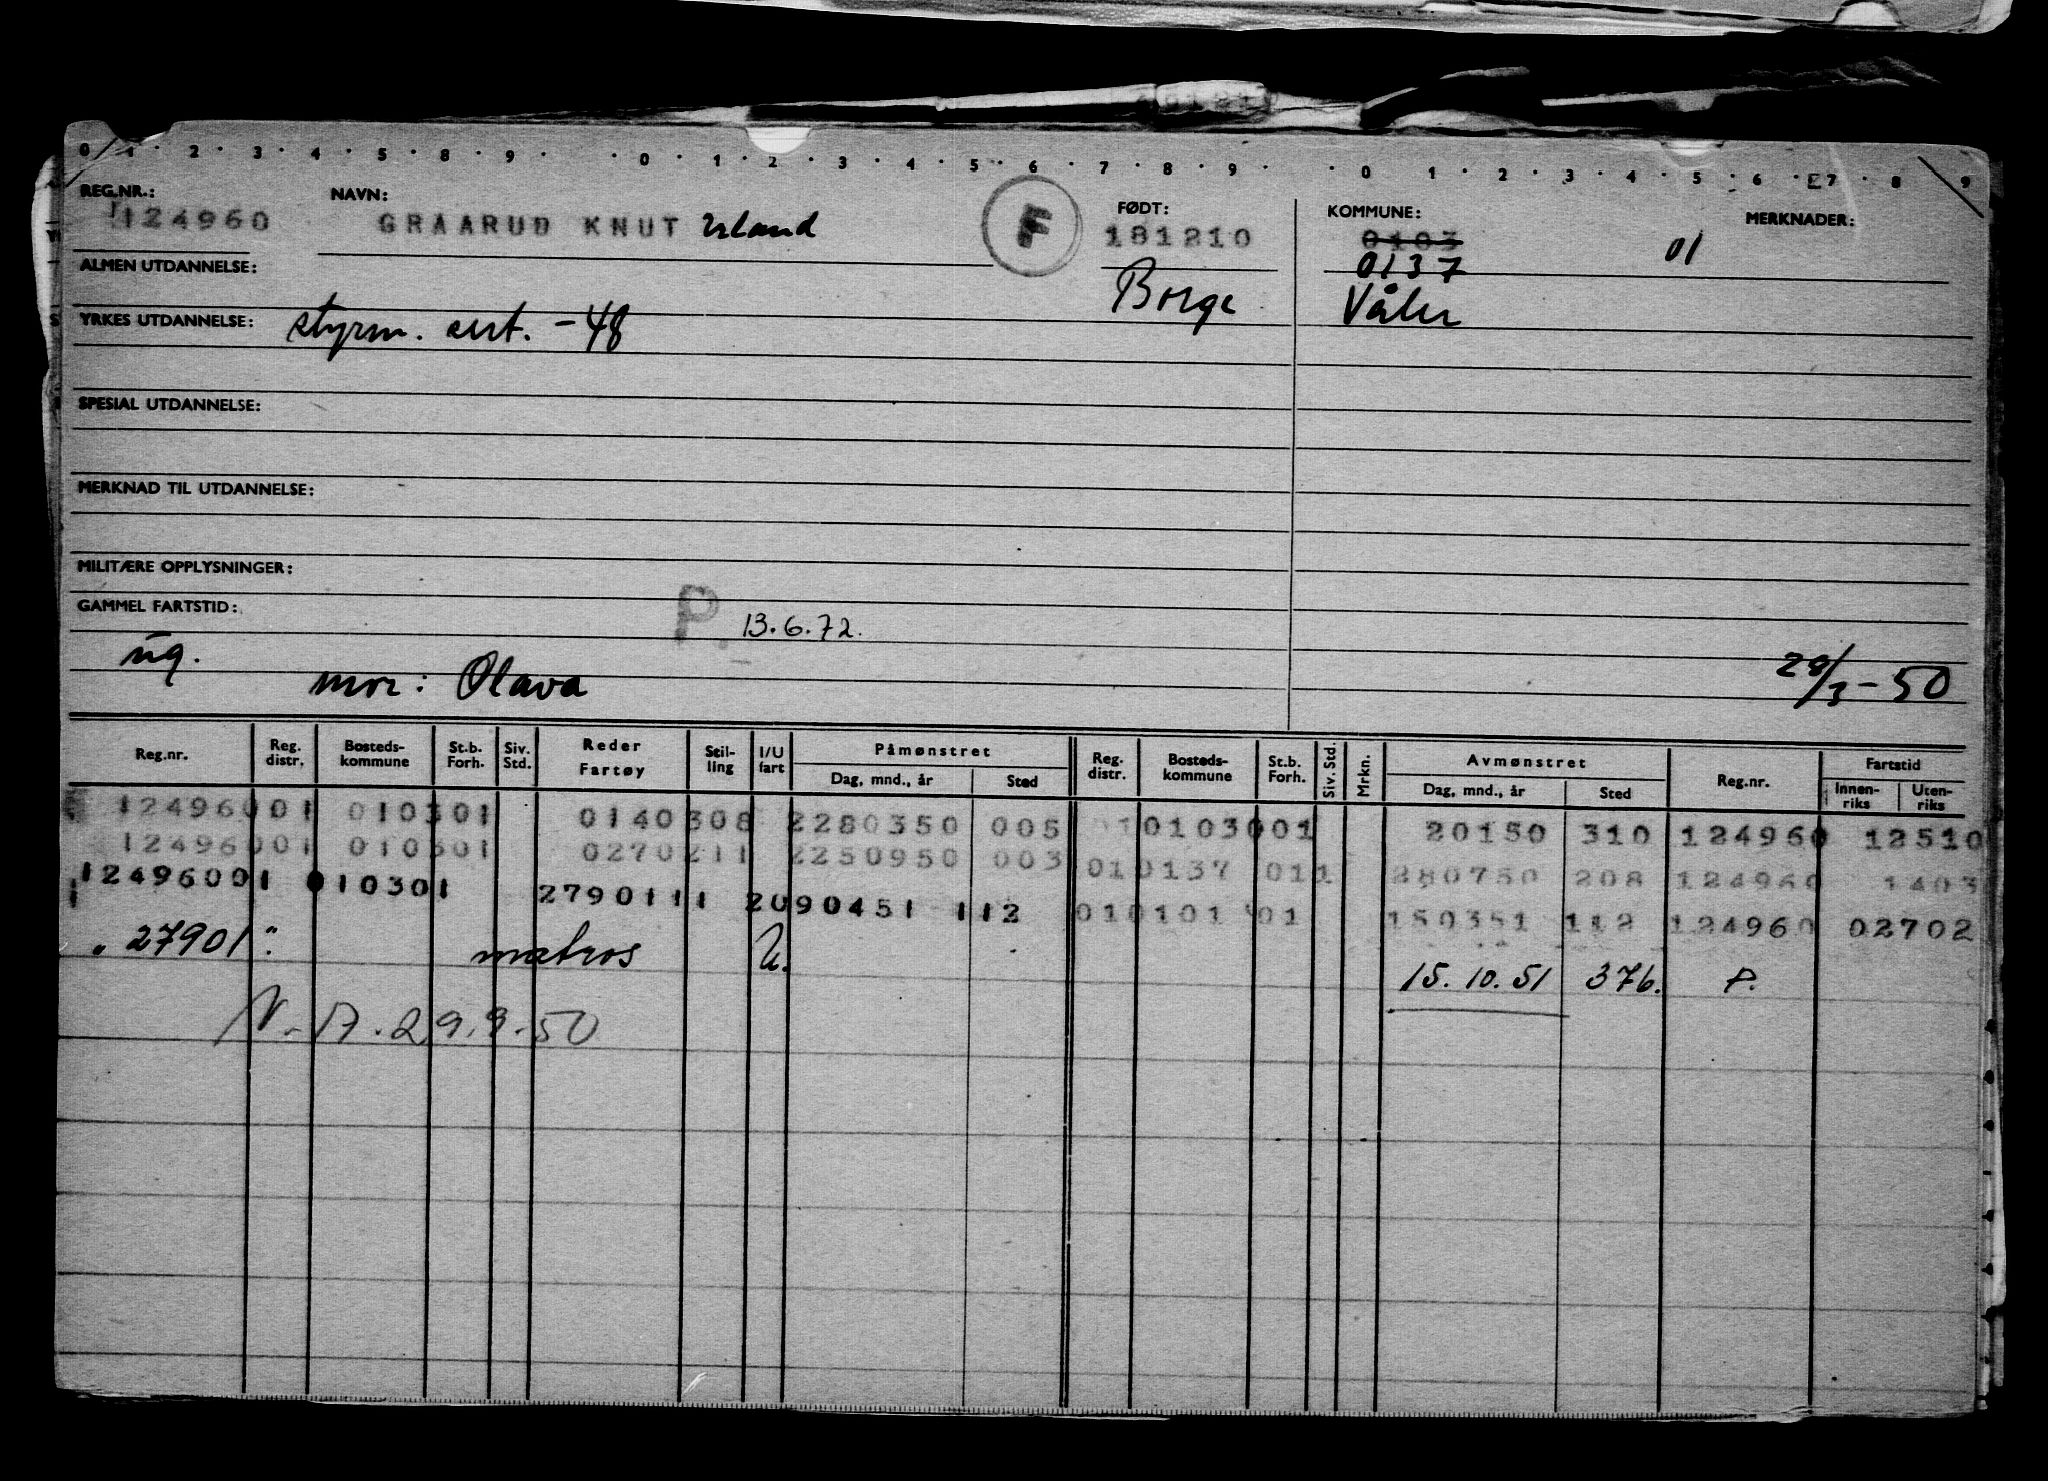 0 1 · 2 · 3 · 4 · 5 · 8 · 9 · · 0 · 1 · 2 · 3 · 4 · 5 · 6 · 7 · 8 · 9 · · 0 · 1 · 2 · 3 · 4 · 5 · 6 · 7 · 8 · 9
REG.NR.: NAVN: FØDT: KOMMUNE: MERKNADER:
124960 GRAARUD KNUT Erland F 181210 0103 01
0137
ALMEN UTDANNELSE: Borge Våler
YRKES UTDANNELSE: styrm. sert. - 48
SPESIAL UTDANNELSE:
MERKNAD TIL UTDANNELSE:
MILITÆRE OPPLYSNINGER:
GAMMEL FARTSTID: P. 13.6.72.
ug. mor: Olava 28/3-50
Reg.nr. Reg. distr. Bosteds-kommune St.b. Forh. Siv. Std. Reder Fartøy Stil-ling I/U fart Påmønstret Dag, mnd., år Sted Reg. distr. Bosteds-kommune St.b. Forh. Siv. Std. Mrkn. Avmønstret Dag, mnd., år Sted Reg.nr. Fartstid Innen-riks Uten-riks
12496001 010301 0140308 2280350 005 010103001 20150 310 124960 12510
12496001 010301 0270211 2250950 003 010137 011 280750 208 124960 1403
12496001 010301 2790111 2090451 112 010101 01 150351 112 124960 02702
" 27901 " matros U. 15.10.51 376. P.
N.A. 29.9.50